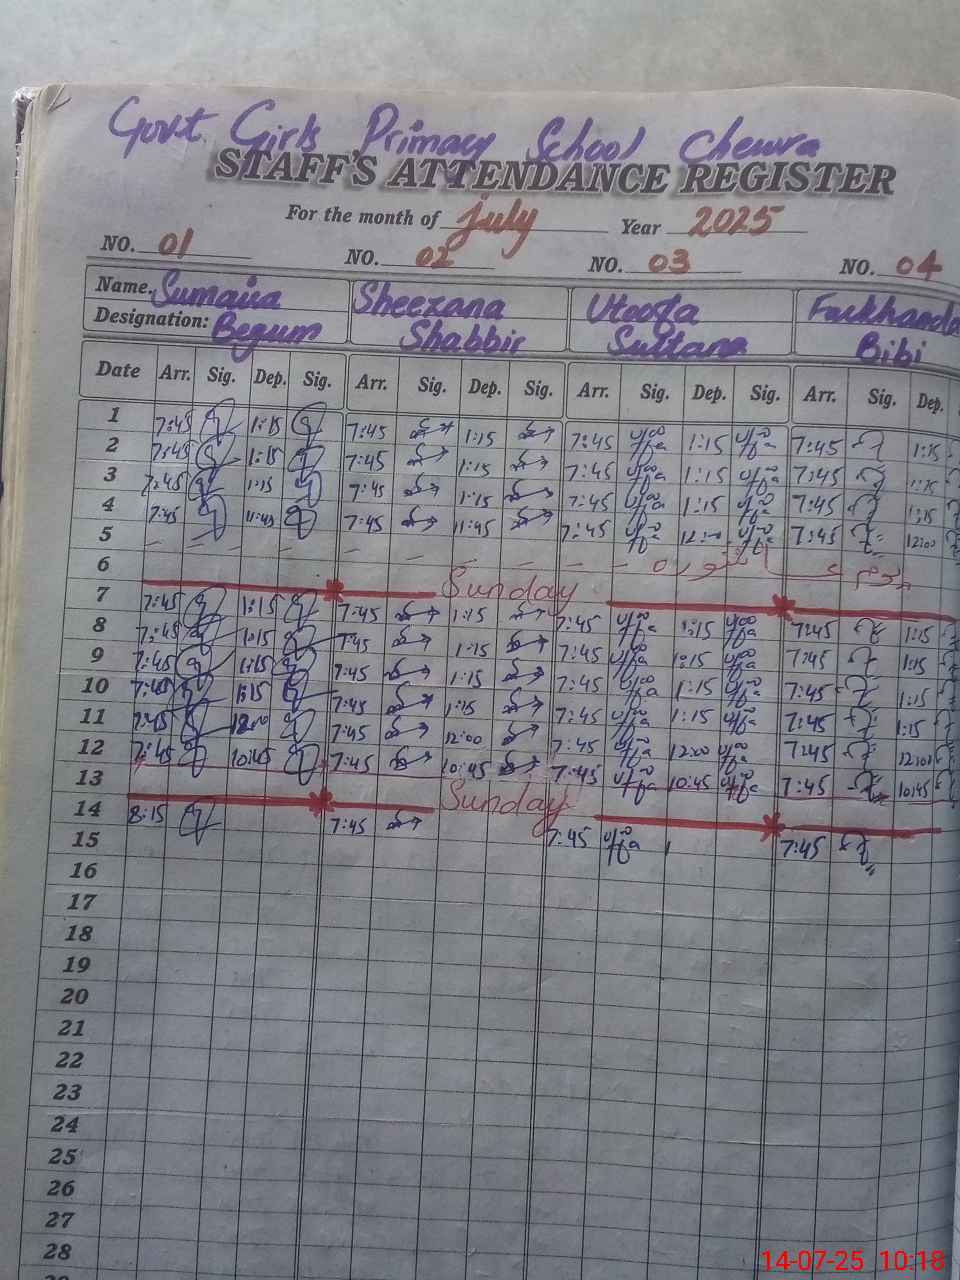 Govt. Girls Primary School Chewra
STAFF'S ATTENDANCE REGISTER
For the month of July Year 2025
NO. 01 NO. 02 NO. 03 NO. 04
Name. Sumaira Sheezana Uteeqa Farkhanda
Designation: Begum Shabbir Sultana Bibi
Date Arr. Sig. Dep. Sig. Arr. Sig. Dep. Sig. Arr. Sig. Dep. Sig. Arr. Sig. Dep.
1 7:45 1:15 7:45 1:15 7:45 1:15 7:45 1:15
2 7:45 1:15 7:45 1:15 7:45 1:15 7:45 1:15
3 7:45 1:15 7:45 1:15 7:45 1:15 7:45 1:15
4 7:45 11:45 7:45 11:45 7:45 12:00 7:45 12:00
5
6 Sunday
7 7:45 1:15 7:45 1:15 7:45 1:15 7:45 1:15
8 7:45 1:15 7:45 1:15 7:45 1:15 7:45 1:15
9 7:45 1:15 7:45 1:15 7:45 1:15 7:45 1:15
10 7:45 1:15 7:45 1:15 7:45 1:15 7:45 1:15
11 7:45 12:00 7:45 12:00 7:45 12:00 7:45 12:00
12 7:45 10:45 7:45 10:45 7:45 10:45 7:45 10:45
13 Sunday
14 8:15 7:45 7:45 7:45
15
16
17
18
19
20
21
22
23
24
25
26
27
28
14-07-25 10:18